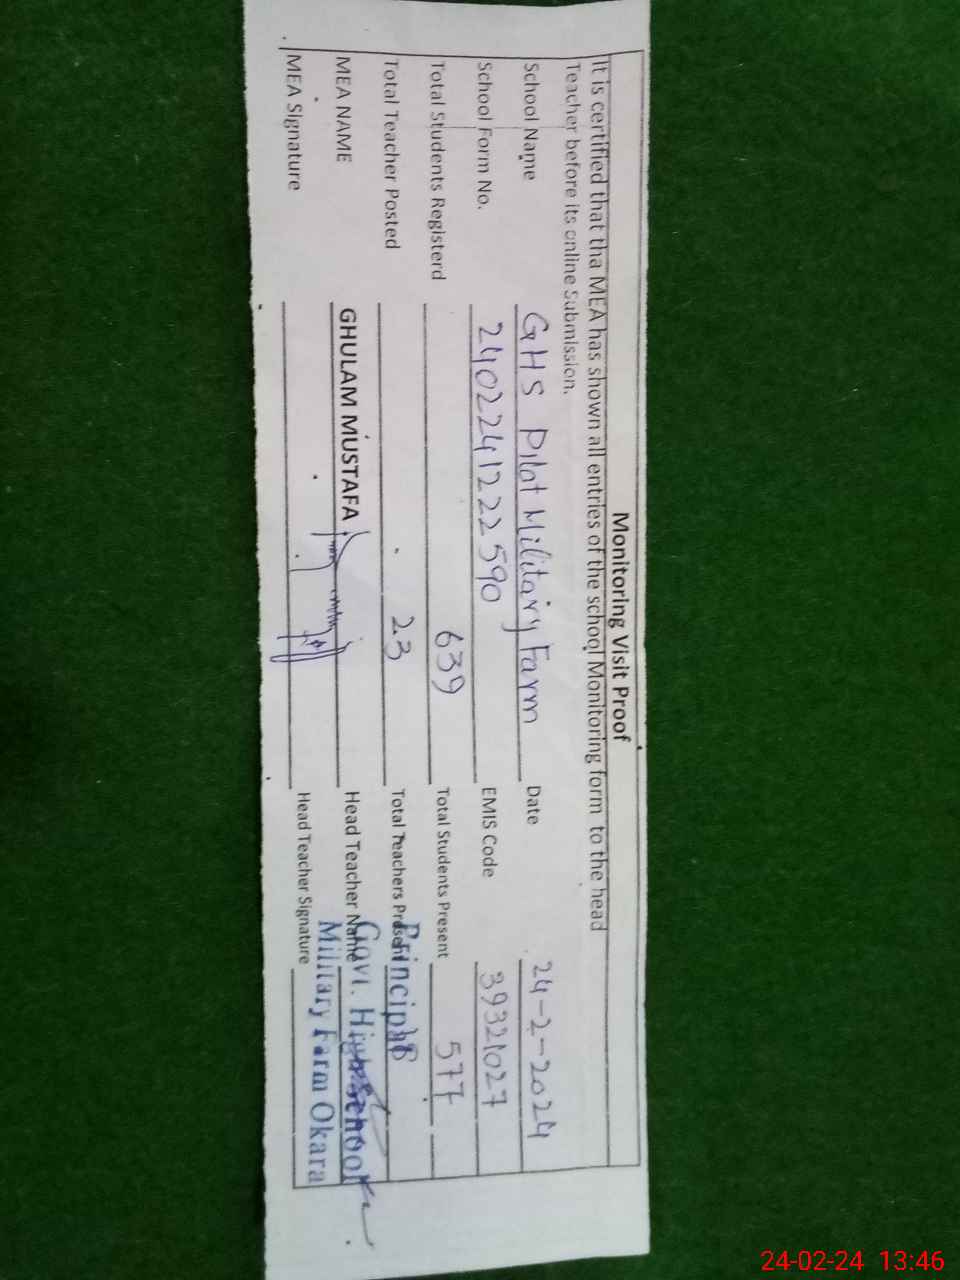 Monitoring Visit Proof
It is certified that tha MEA has shown all entries of the school Monitoring form to the head
Teacher before its online Submission.
School Name GHS Pilot Military Farm Date 24-2-2024
School Form No. 2402241222590 EMIS Code 39321027
Total Students Registerd 639 Total Students Present 577
Total Teacher Posted 23 Total Teachers Present
MEA NAME GHULAM MUSTAFA Head Teacher Name
MEA Signature Head Teacher Signature
Principal
Govt. High School
Military Farm Okara
24-02-24 13:46